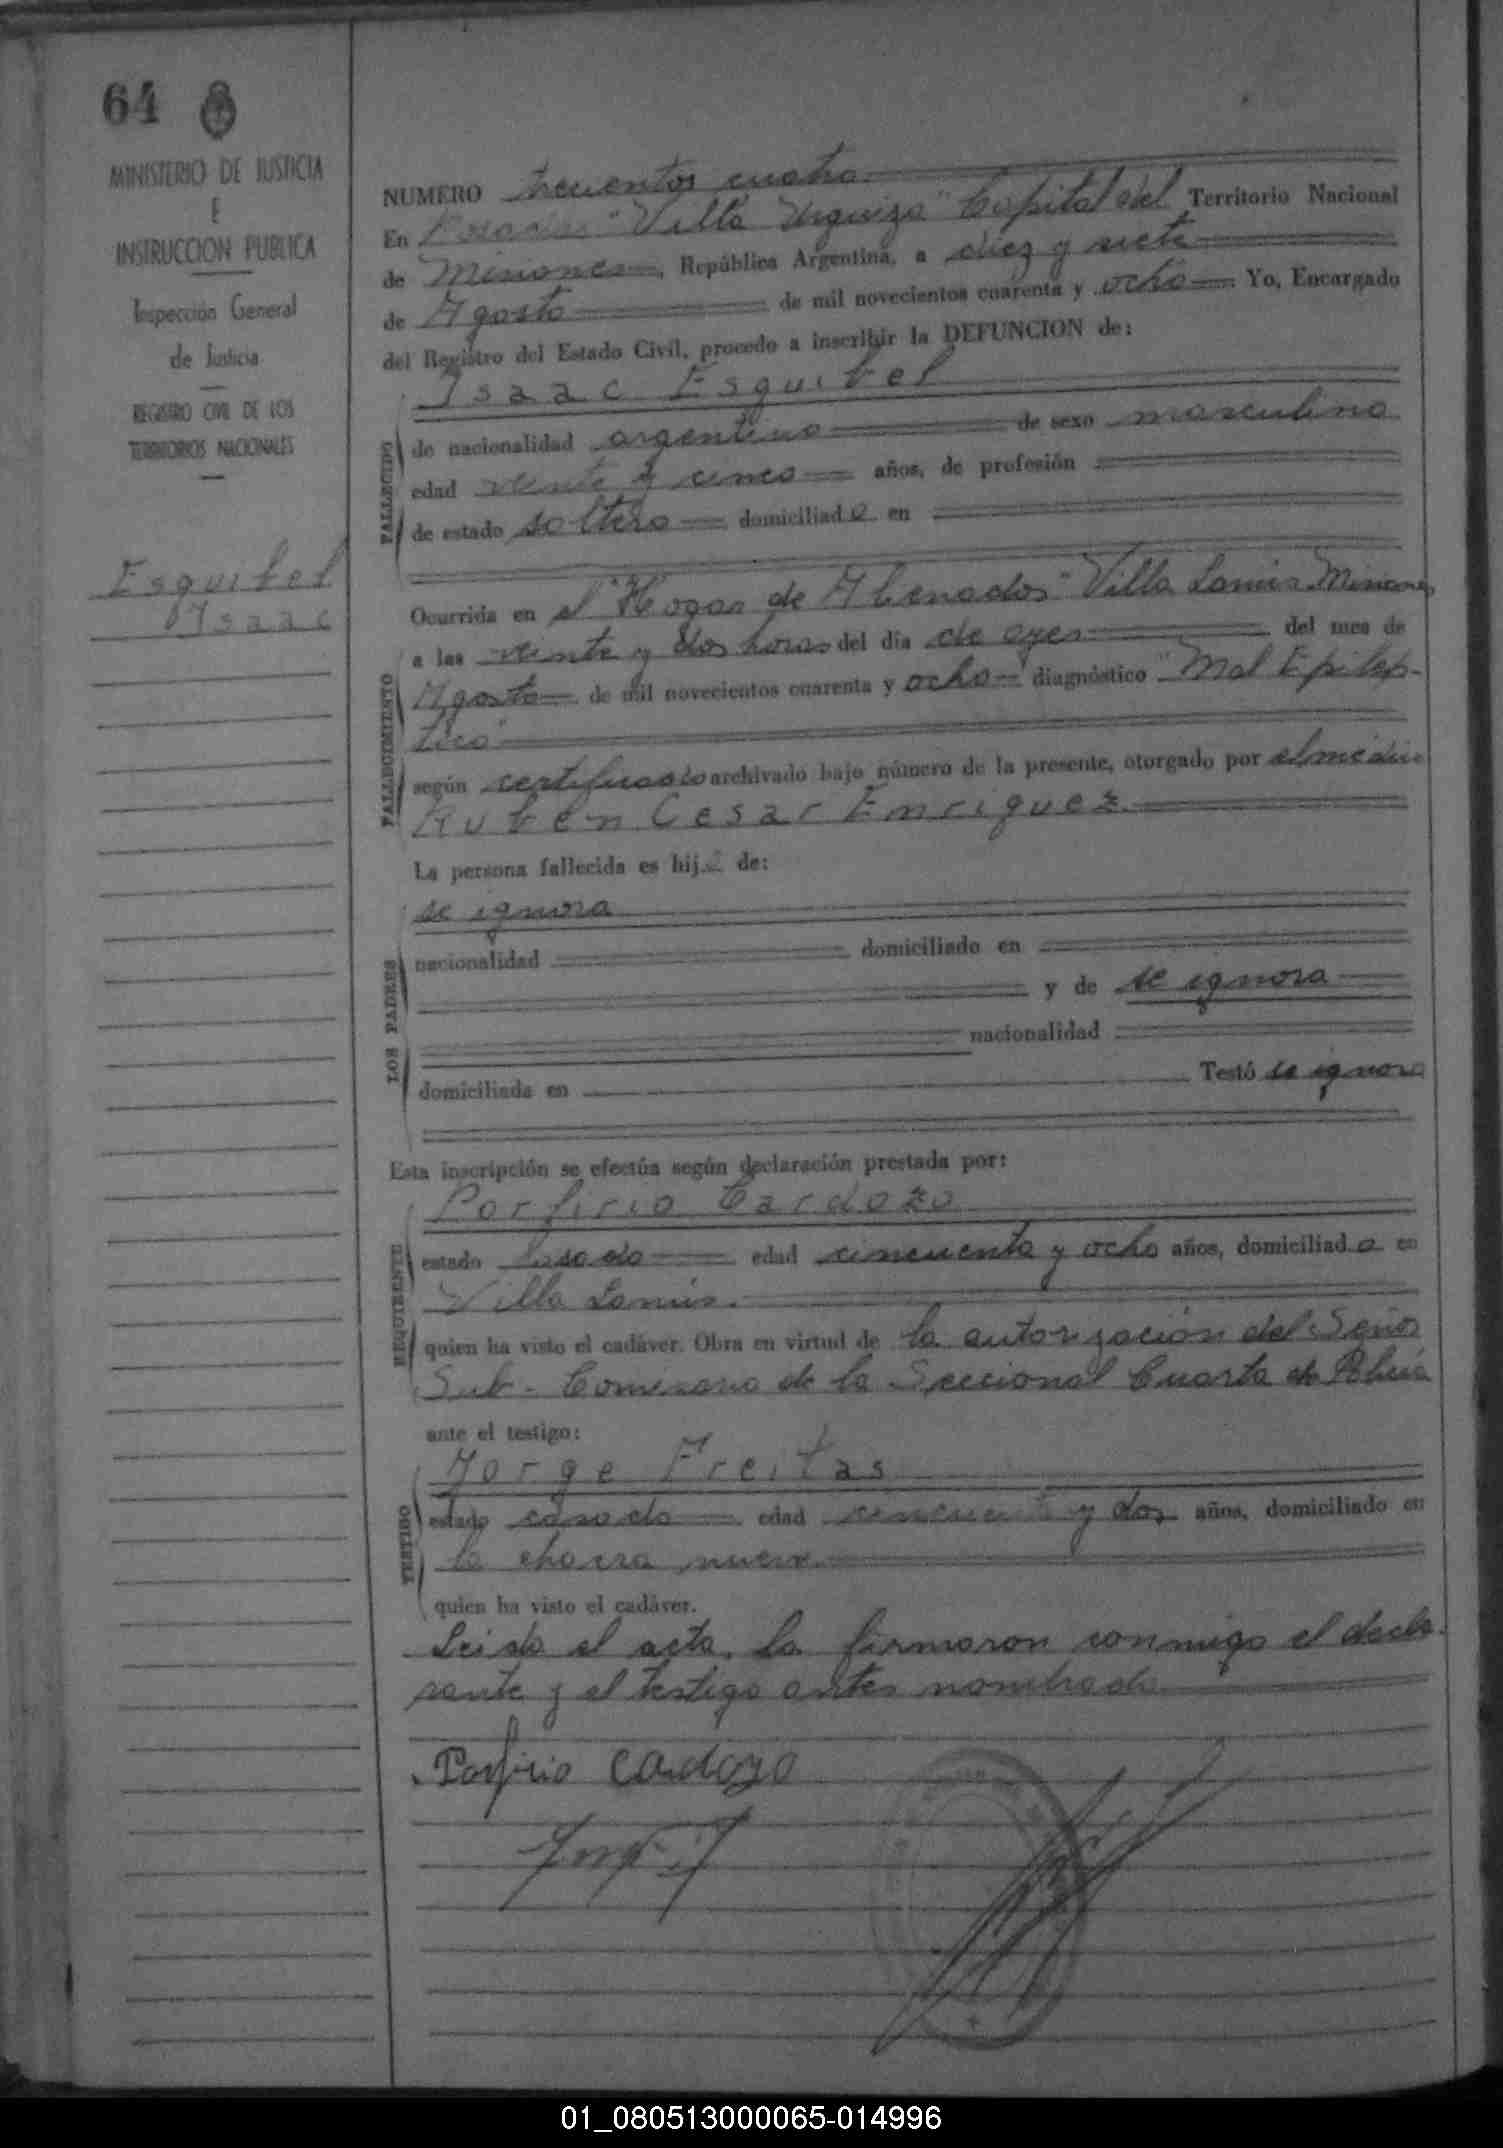 64
MINISTERIO DE JUSTICIA
E
INSTRUCCION PUBLICA
Inspección General
de Justicia
REGISTRO CIVIL DE LOS
TERRITORIOS NACIONALES
Esquibel
Isaac
NUMERO trecientos cuatro
En Posadas "Villa Urquiza" Capital del Territorio Nacional
de Misiones, República Argentina, a diez y siete
de Agosto de mil novecientos cuarenta y ocho Yo, Encargado
del Registro del Estado Civil, procedo a inscribir la DEFUNCION de:
Isaac Esquibel
FALLECIDO
de nacionalidad argentino de sexo masculino
edad veinte y cinco años, de profesión
de estado soltero domiciliado en
FALLECIMIENTO
Ocurrida en el "Hogar de Alienados" Villa Lanús Misiones
a las veinte y dos horas del día de ayer del mes de
Agosto de mil novecientos cuarenta y ocho diagnóstico "Mal Epilep-
tico"
según certificado archivado bajo número de la presente, otorgado por el médico
Ruben Cesar Enriquez
La persona fallecida es hijo de:
LOS PADRES
se ignora
nacionalidad domiciliado en
y de se ignora
nacionalidad
domiciliada en Testó se ignora
Esta inscripción se efectúa según declaración prestada por:
REQUIRENTE
Porfirio Cardozo
estado casado edad cincuenta y ocho años, domiciliado en
Villa Lanús.
quien ha visto el cadáver. Obra en virtud de la autorización del Señor
Sub-Comisario de la Seccional Cuarta de Policía
ante el testigo:
TESTIGO
Jorge Freitas
estado casado edad cincuenta y dos años, domiciliado en
la chacra nueve
quien ha visto el cadáver.
Leida el acta, la firmaron conmigo el decla-
rante y el testigo antes nombrado
Porfirio Cardozo
01_080513000065-014996